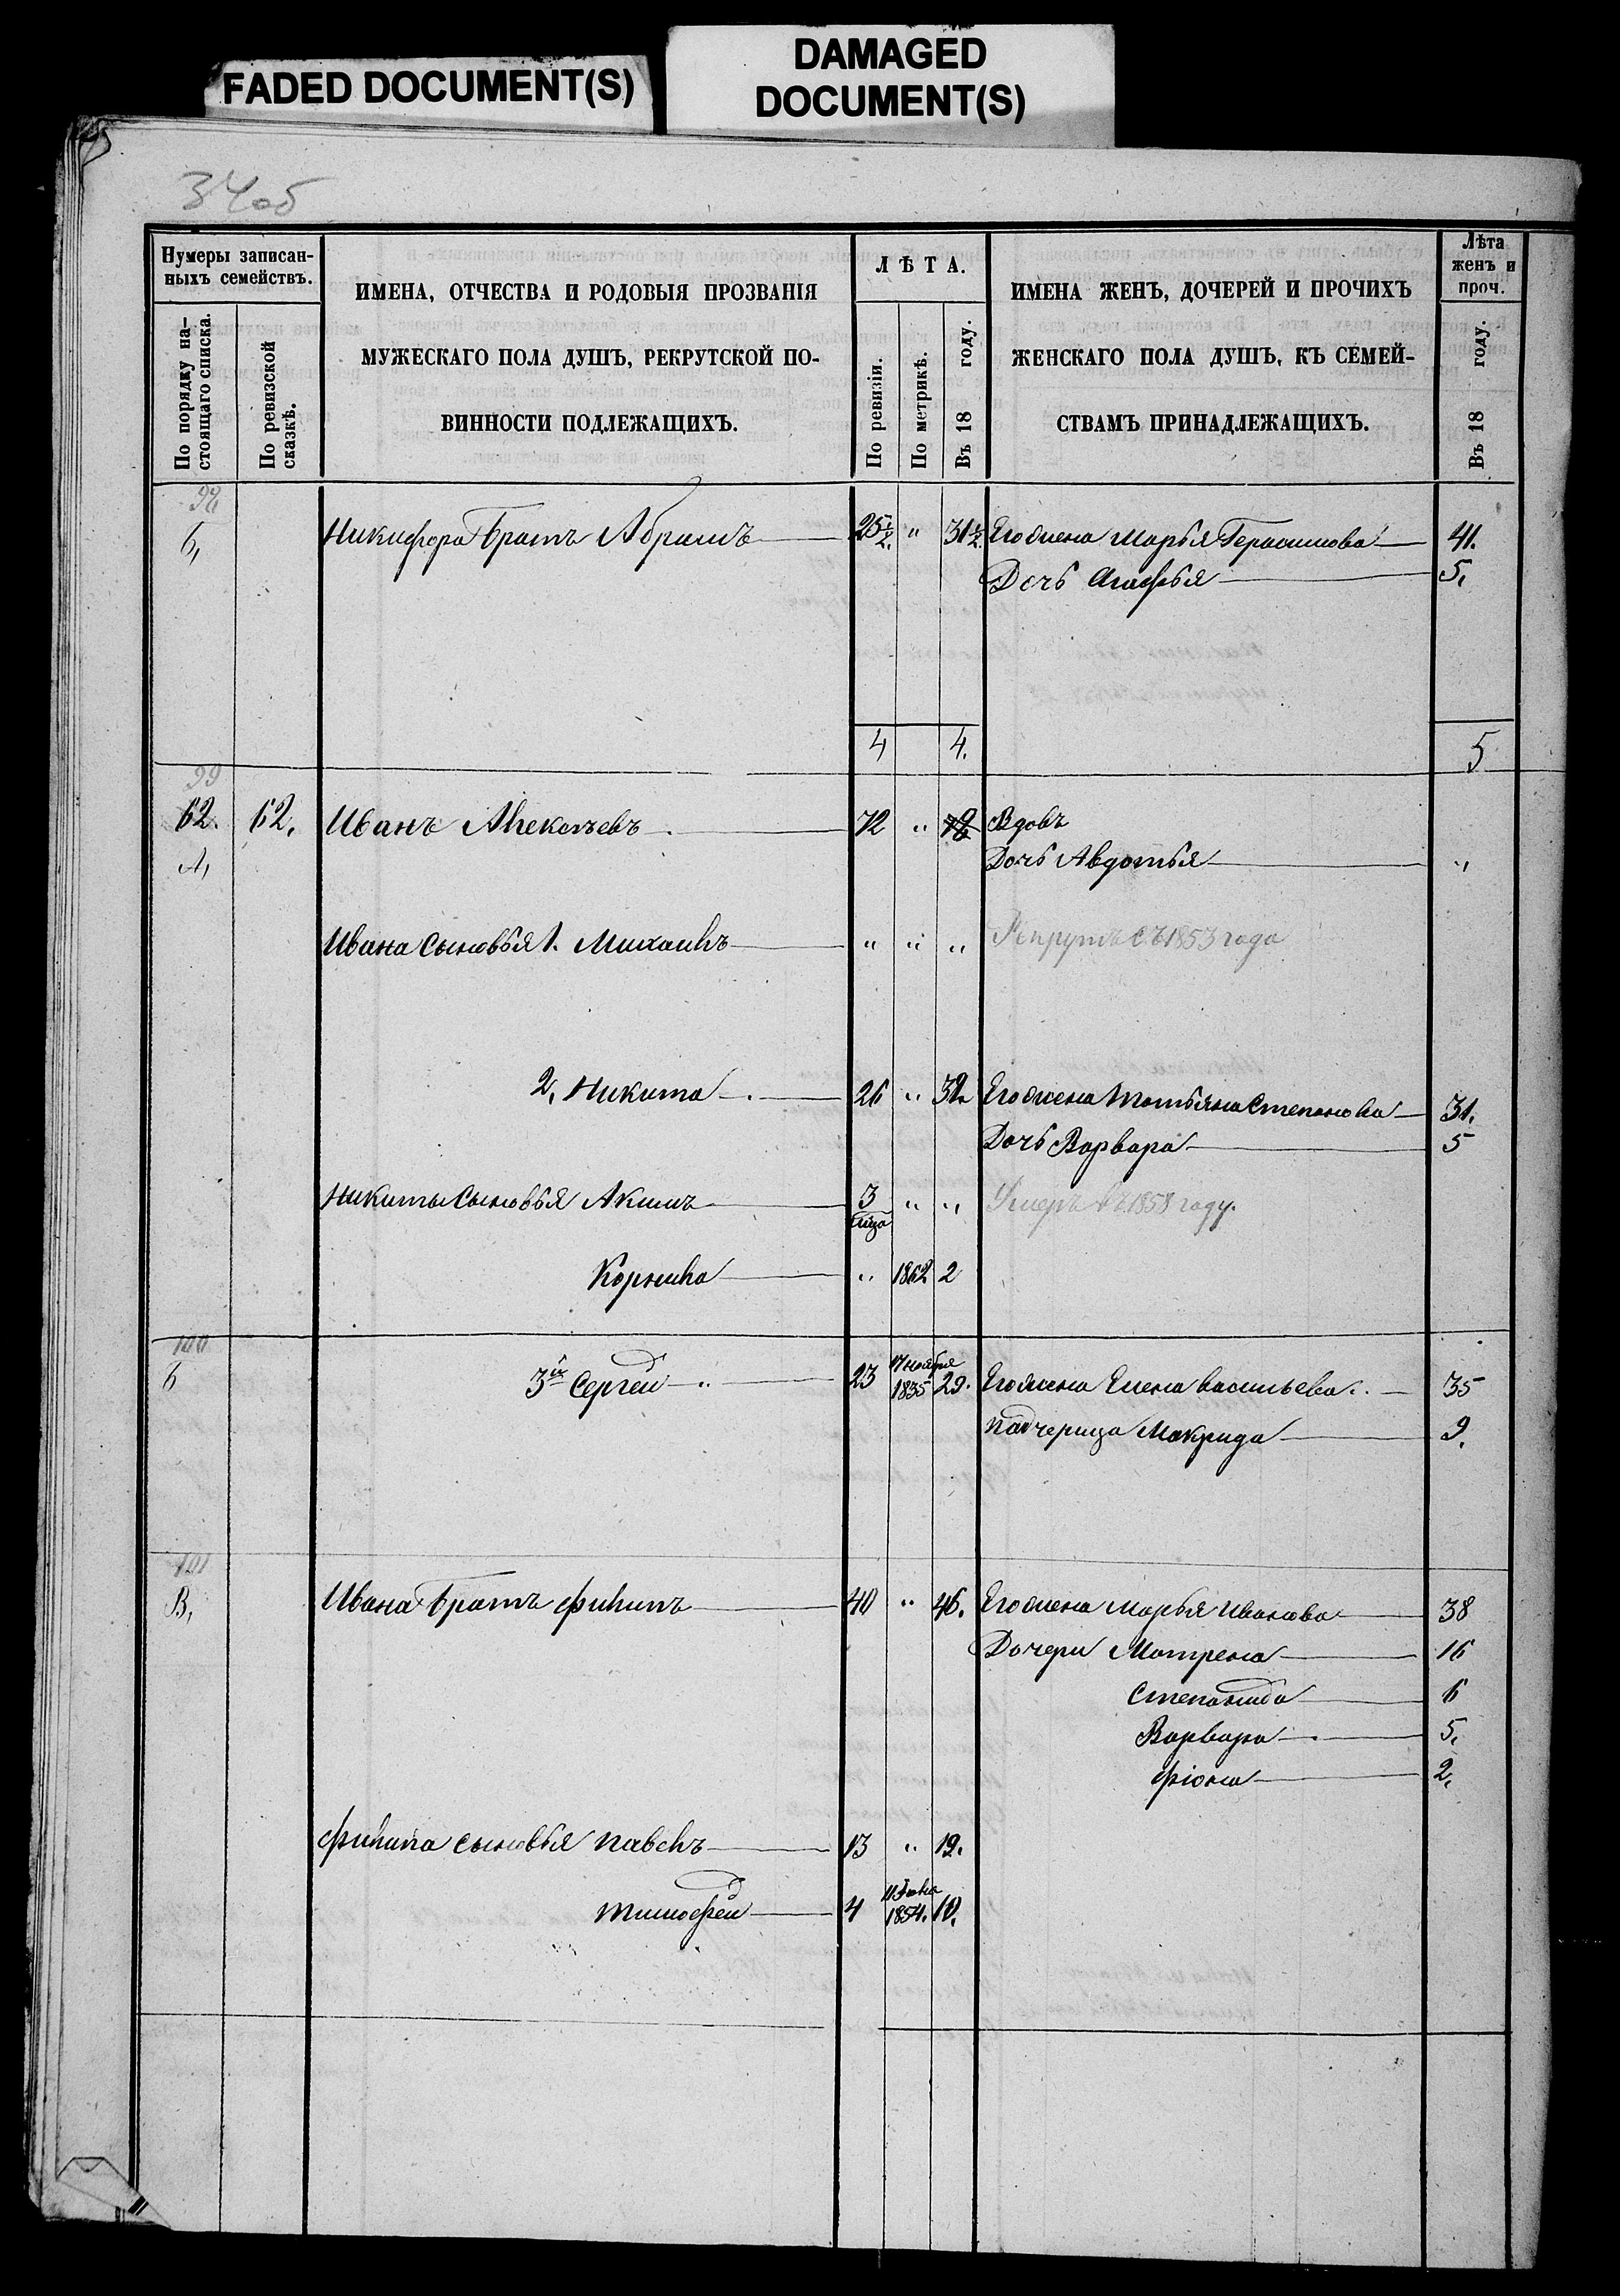 FADED DOCUMENT(S)
DAMAGED
DOCUMENT(S)
34об
Нумеры записан-
ныхъ семействъ.
По порядку на-
стоящаго списка.
По ревизской
сказкѣ.
ИМЕНА, ОТЧЕСТВА И РОДОВЫЯ ПРОЗВАНІЯ
МУЖЕСКАГО ПОЛА ДУШЪ, РЕКРУТСКОЙ ПО-
ВИННОСТИ ПОДЛЕЖАЩИХЪ.
ЛѢТА.
По ревизіи.
По метрикѣ.
Въ 18 году.
ИМЕНА ЖЕНЪ, ДОЧЕРЕЙ И ПРОЧИХЪ
ЖЕНСКАГО ПОЛА ДУШЪ, КЪ СЕМЕЙ-
СТВАМЪ ПРИНАДЛЕЖАЩИХЪ.
Лѣта
женъ и
проч.
Въ 18 году.
98
Б, Никифора братъ Абрамъ 25 1/2. " 31 1/2. Его жена Марья Герасимова 41.
Дочь Агафья 5,
4 4. 5
99
62. 62, Иванъ Алексѣевъ 72 " 78 Вдовъ
А, Дочь Авдотья "
Ивана сыновья 1. Михаилъ " " " Рекрутъ съ 1853 года
2, Никита 26 " 32. Его жена Татьяна Степанова 31.
Дочь Варвара 5
Никиты сыновья Акимъ 3 " " Умеръ въ 1858 году.
Корнила " 1862 2
100
Б 3й Сергей 23 17 ноября 1835 29. Его жена Елена Васильева 35
Падчерица Макрида 9.
101
В, Ивана братъ Филипъ 40 " 46. Его жена Марья Иванова 38
Дочери Матрена 16
Степанида 6
Варвара 5,
Фіона 2,
Филипа сыновья Павелъ 13 " 19.
Тимофей 4 1854. 10.